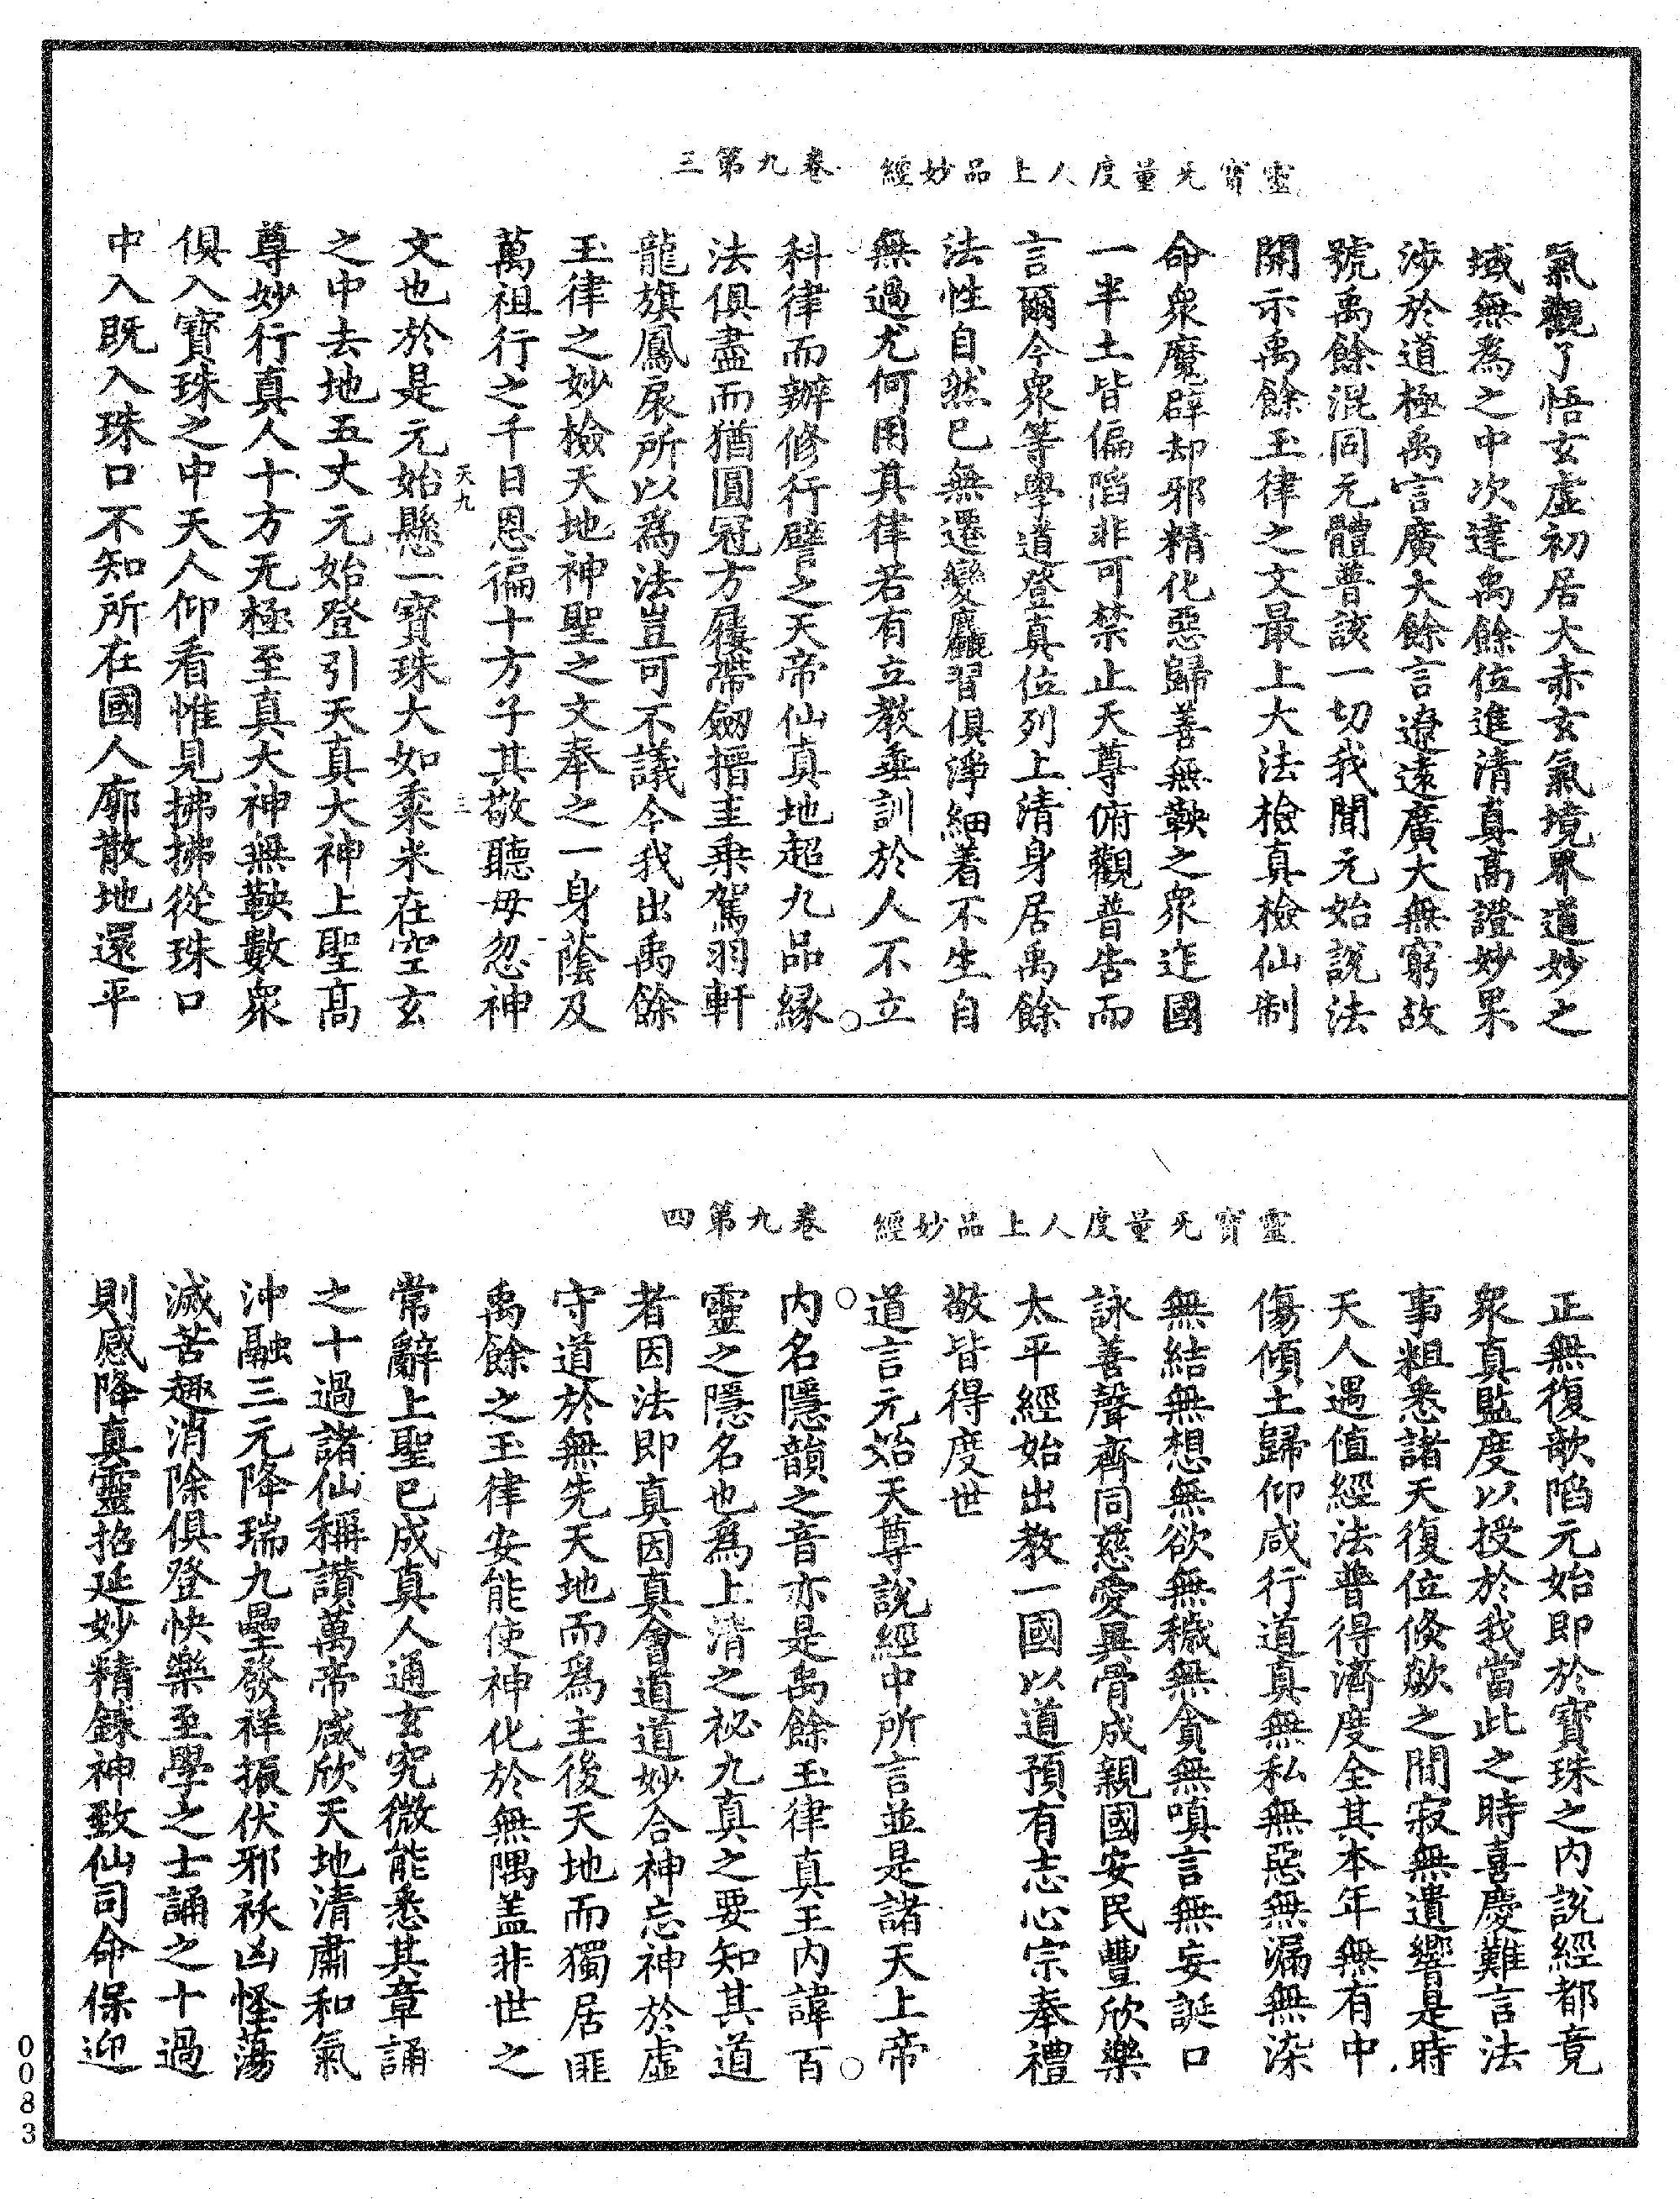 靈寳无量度人上品妙經　卷九第三
氣觀了悟玄虛初居大赤玄氣境界道妙之
域無為之中次達禹餘位進清真高證妙果
渉於道極禹言廣大餘言遼遠廣大無窮故
號禹餘混同元體普該一切我聞元始說法
開示禹餘玉律之文最上大法檢真檢仙制
命衆魔辟却邪精化惡歸善無鞅之衆迮國
一半土皆偏陷非可禁止天尊俯觀普告而
言爾今衆等學道登真位列上清身居禹餘
法性自然已無遷變麤習俱淨細着不生自
無過尤何用其律若有立教垂訓於人不立
科律而辦修行譬之天帝仙真地超九品緣
法俱盡而猶圓冠方履帶劒搢圭乗駕羽軒
龍旗鳳扆所以為法豈可不議今我出禹餘
玉律之妙檢天地神聖之文奉之一身蔭及
萬祖行之千日恩徧十方子其敬聽毋忽神
天九　三
文也於是元始懸一寳珠大如黍米在空玄
之中去地五丈元始登引天真大神上聖髙
尊妙行真人十方无極至真大神無鞅數衆
俱入寳珠之中天人仰看惟見拂拂從珠口
中入既入珠口不知所在國人廓散地還平
靈寳无量度人上品妙經　卷九第四
正無復欹陷元始即於寳珠之内說經都竟
衆真監度以授於我當此之時喜慶難言法
事粗悉諸天復位倏歘之間寂無遺響是時
天人遇值經法普得濟度全其本年無有中
傷傾土歸仰咸行道真無私無惡無漏無染
無結無想無欲無穢無貪無嗔言無妄誕口
詠善聲齊同慈愛異骨成親國安民豐欣樂
太平經始出教一國以道預有志心宗奉禮
敬皆得度世
道言元始天尊說經中所言並是諸天上帝
内名隱韻之音亦是禹餘玉律真王内諱百
靈之隱名也為上清之祕九真之要知其道
者因法即真因真會道道妙合神忘神於虛
守道於無先天地而為主後天地而獨居匪
禹餘之玉律安能使神化於無隅盖非世之
常辭上聖已成真人通玄究微能悉其章誦
之十過諸仙稱讃萬帝咸欣天地清肅和氣
沖融三元降瑞九壘發祥振伏邪祅凶怪蕩
滅苦趣消除俱登快樂至學之士誦之十過
則感降真靈招延妙精錬神致仙司命保迎
0083